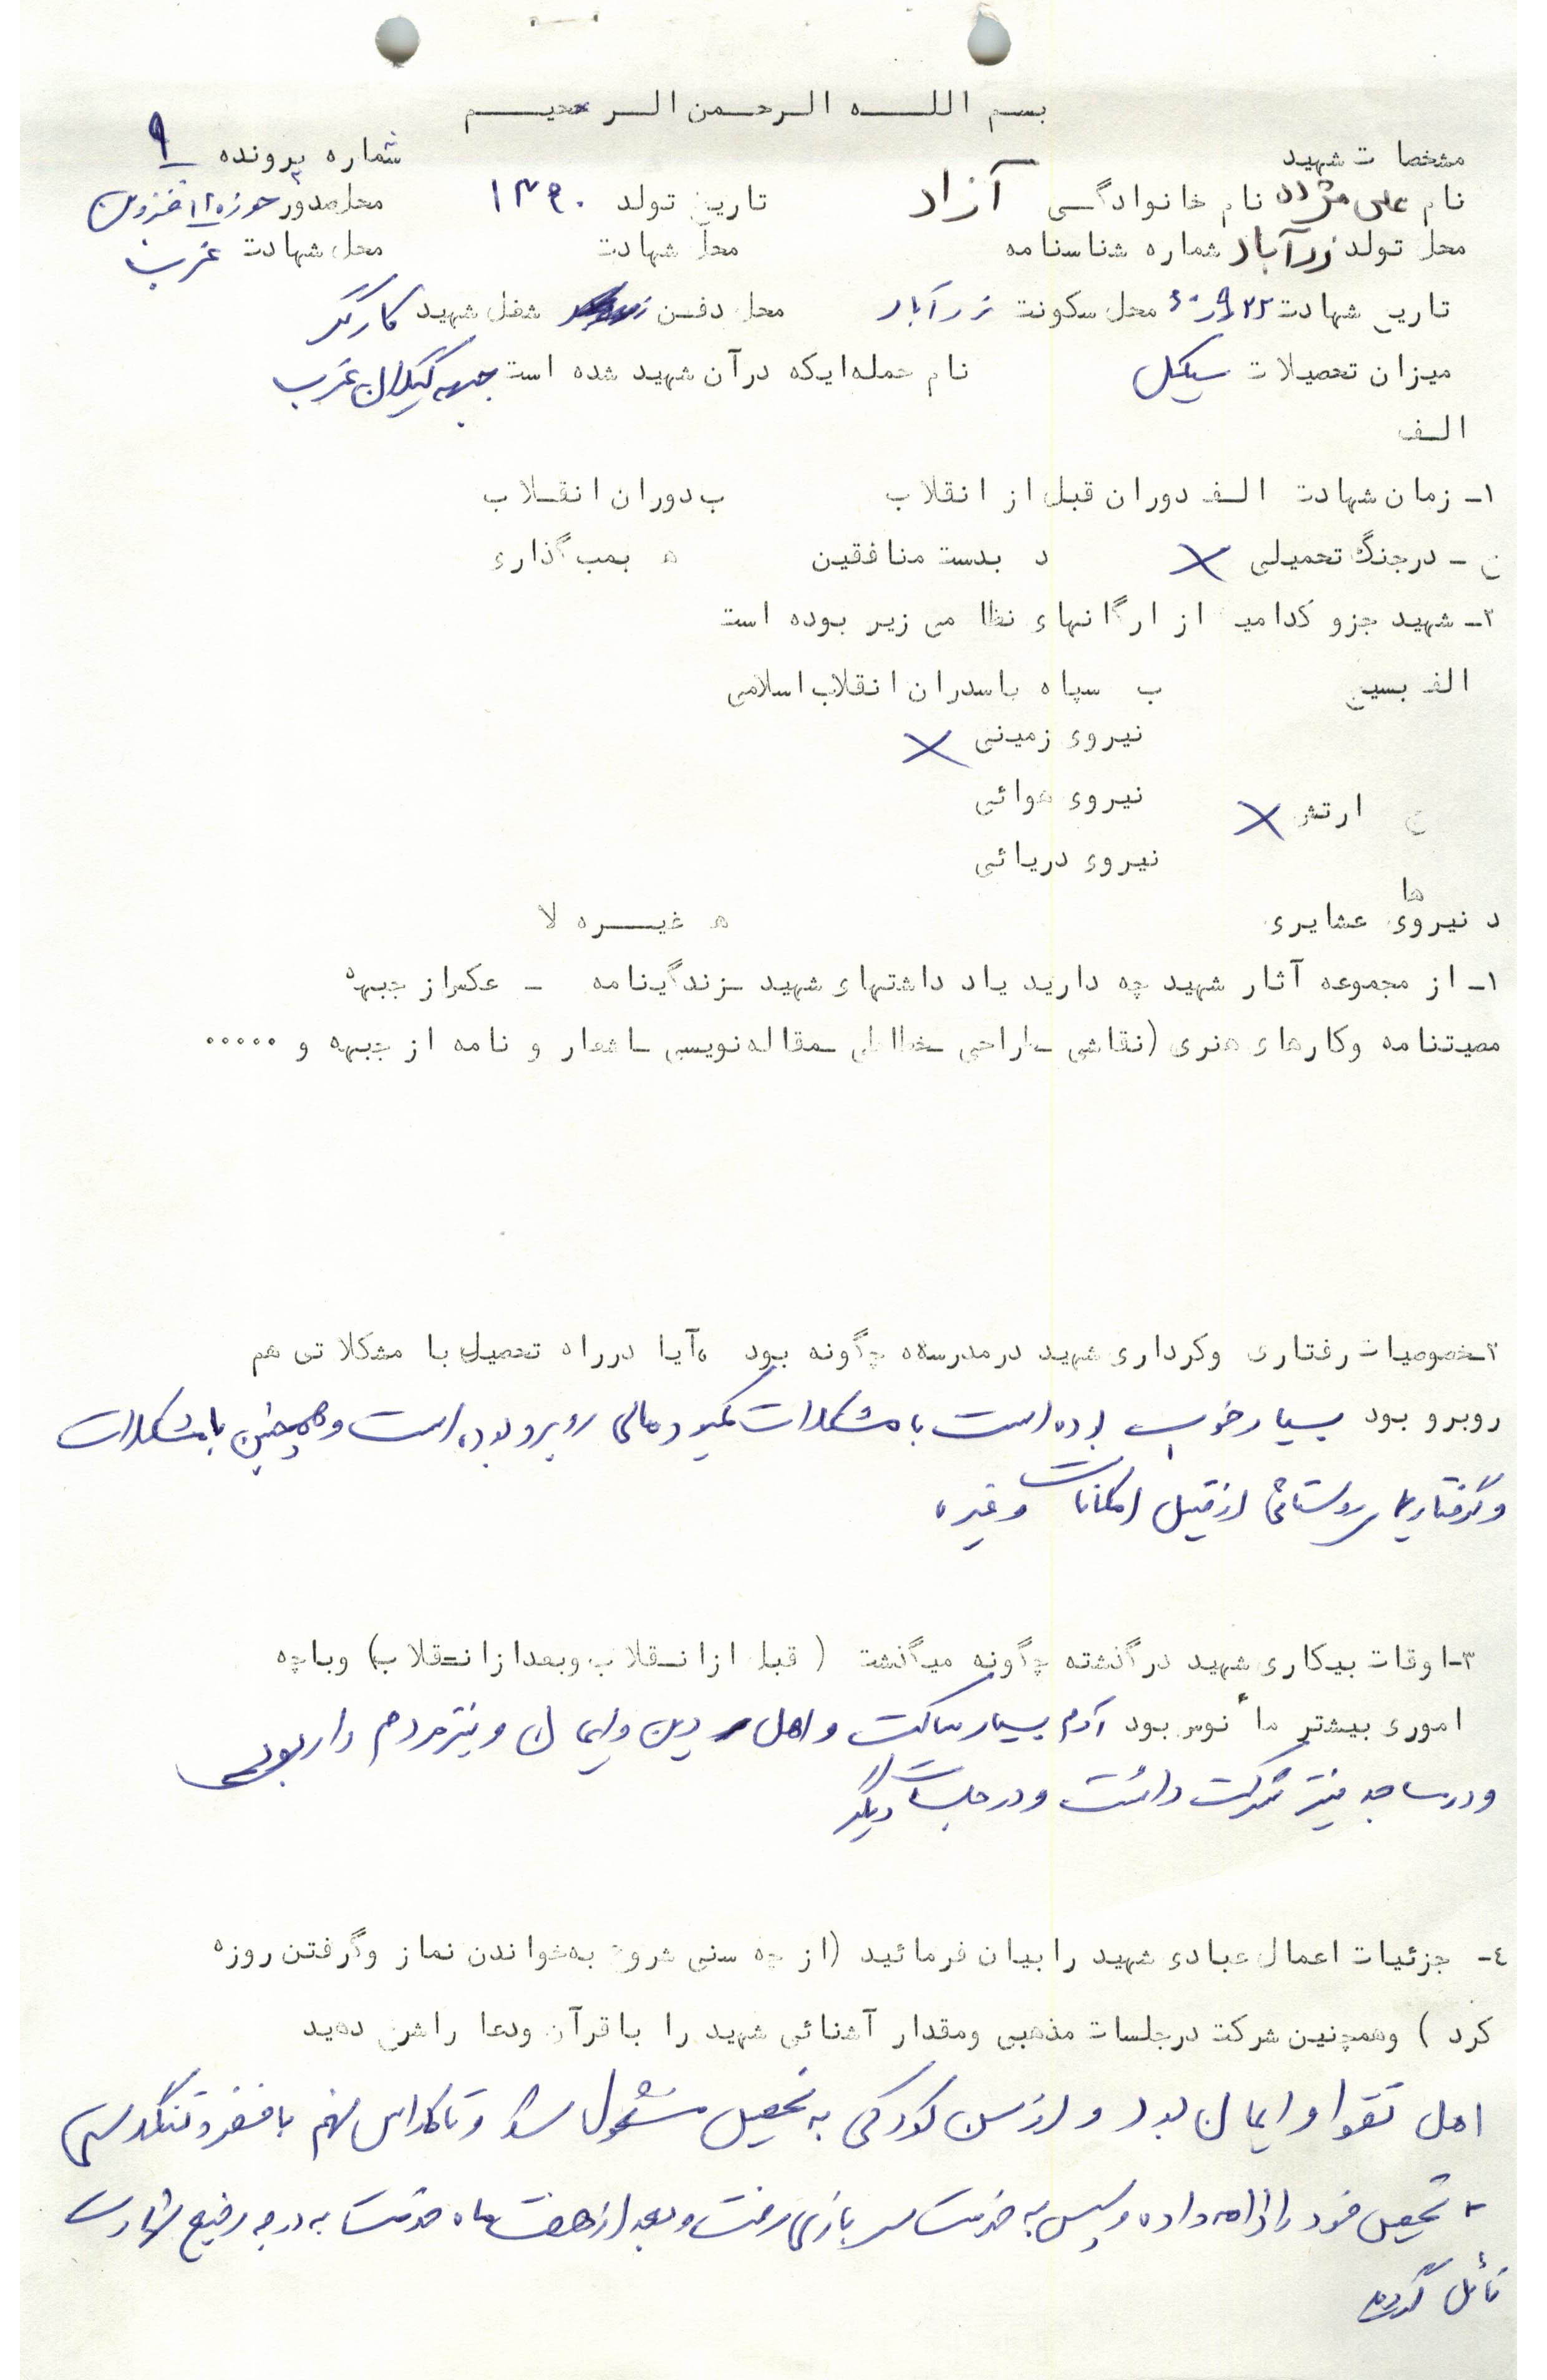 بسم الله الرحمن الرحیم
مشخصات شهید شماره پرونده ۹
نام علی مژده نام خانوادگی آزاد تاریخ تولد ۱۳۴۰ محل صدور حوزه ۱۲ قزوین
محل تولد زرآباد شماره شناسنامه محل شهادت محل شهادت غرب
تاریخ شهادت ۶۰٫۹٫۲۲ محل سکونت زرآباد محل دفن شغل شهید کارگر
میزان تحصیلات سیکل نام حمله‌ایکه در آن شهید شده است جبهه گیلان غرب
الف
۱- زمان شهادت الف دوران قبل از انقلاب ب دوران انقلاب
ج - در جنگ تحمیلی X د بدست منافقین ه بمب گذاری
۲- شهید جزو کدامیک از ارگانهای نظامی زیر بوده است
الف بسیج ب سپاه پاسدران انقلاب اسلامی
نیروی زمینی X
نیروی هوائی
ج ارتش X
نیروی دریائی
د نیروهای عشایری ه غیره لا
۱- از مجموعه آثار شهید چه دارید یاد داشتهای شهید - زندگینامه - عکس از جبهه
وصیتنامه وکارهای هنری (نقاشی - طراحی - خطاطی - مقاله نویسی - اشعار و نامه از جبهه و .....
۲- خصوصیات رفتاری وکرداری شهید در مدرسه چگونه بود ، آیا در راه تحصیل با مشکلاتی هم
روبرو بود بسیار خوب بوده است با مشکلات کمبود مالی روبرو بوده است و همچنین با مشکلات
و گرفتاریهای روستائی از قبیل امکانات و غیره
۳- اوقات بیکاری شهید در گذشته چگونه میگذشت ( قبل از انقلاب وبعد از انقلاب) وباچه
اموری بیشتر مأنوس بود آدم بسیار ساکت و اهل دین و ایمان و نیز مردم دار بود
و در مساجد نیز شرکت داشت و در جلسات دیگر
٤- جزئیات اعمال عبادی شهید را بیان فرمائید (از چه سنی شروع به خواندن نماز وگرفتن روزه
کرد ) وهمچنین شرکت در جلسات مذهبی ومقدار آشنائی شهید را با قرآن ودعا را شرح دهید
اهل تقوا و ایمان بود و از سن کودکی به تحصیل مشغول شد و تا کلاس نهم با فقر و تنگدستی
تحصیل خود را ادامه داده و سپس به خدمت سربازی رفت و بعد از هفت ماه خدمت به درجه رفیع شهادت
نائل گردید